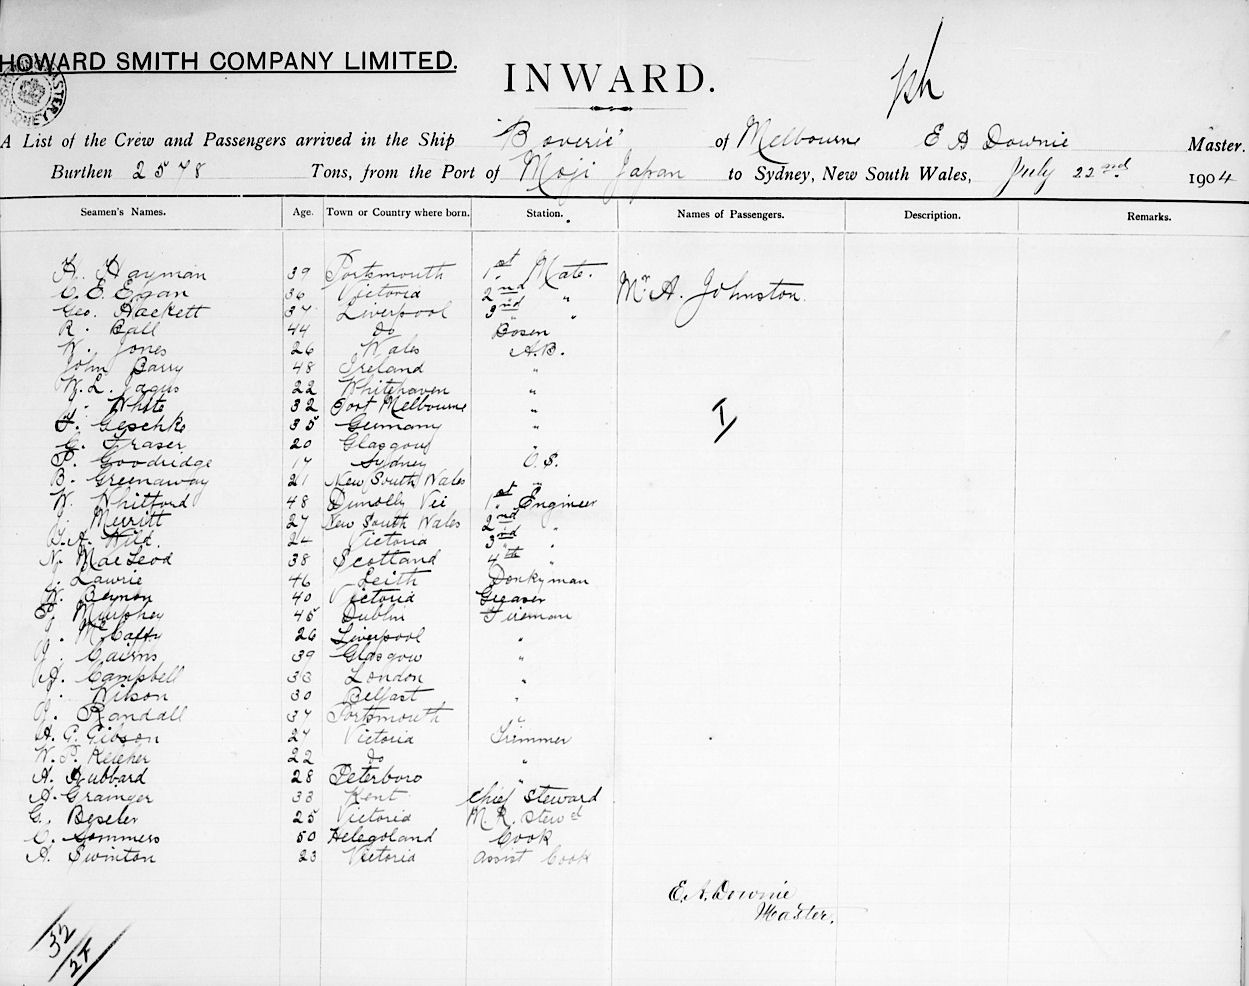 HOWARD SMITH COMPANY LIMITED.
INWARD.
A List of the Crew and Passengers arrived in the Ship "Boveric" of Melbourne E A Downie Master.
Burthen 2578 Tons, from the Port of Moji Japan to Sydney, New South Wales, July 22nd 1904
Seamen's Names. Age. Town or Country where born. Station. Names of Passengers. Description. Remarks.
H. Hayman 39 Portsmouth 1st Mate.
C. E. Egan 36 Victoria 2nd " Mr A. Johnston
Geo. Hackett 37 Liverpool 3rd "
R. Ball 44 do Bosen
W. Jones 26 Wales A.B.
John Barry 48 Ireland "
W. L. Jagus 22 Whitehaven "
White 32 Port Melbourne "
F. Geschke 35 Germany "
G. Fraser 20 Glasgow "
P. Goodridge 17 Sydney O.S.
B. Greenaway 21 New South Wales "
W. Whitford 48 Dunolly Vic 1st Engineer
J. Merritt 27 New South Wales 2nd "
Wild. 24 Victoria 3rd "
N. MacLeod 38 Scotland 4th "
J. Lawrie 46 Leith Donkyman
W. Beynon 40 Victoria Greaser
P. Murphey 45 Dublin Fireman
J. McCaffry 26 Liverpool "
J. Cairns 39 Glasgow "
Campbell 33 London "
J. Wilson 30 Belfast "
J. Randall 37 Portsmouth "
A. G. Gibson 27 Victoria Trimmer
W. P. Keleher 22 do "
A. Hubbard 28 Peterboro "
A. Grainger 33 Kent Chief Steward
G. Beseler 25 Victoria M.R. Stewd
C. Sommers 50 Helegoland Cook
A. Swinton 23 Victoria assist Cook
E. A. Downie
Master.
32